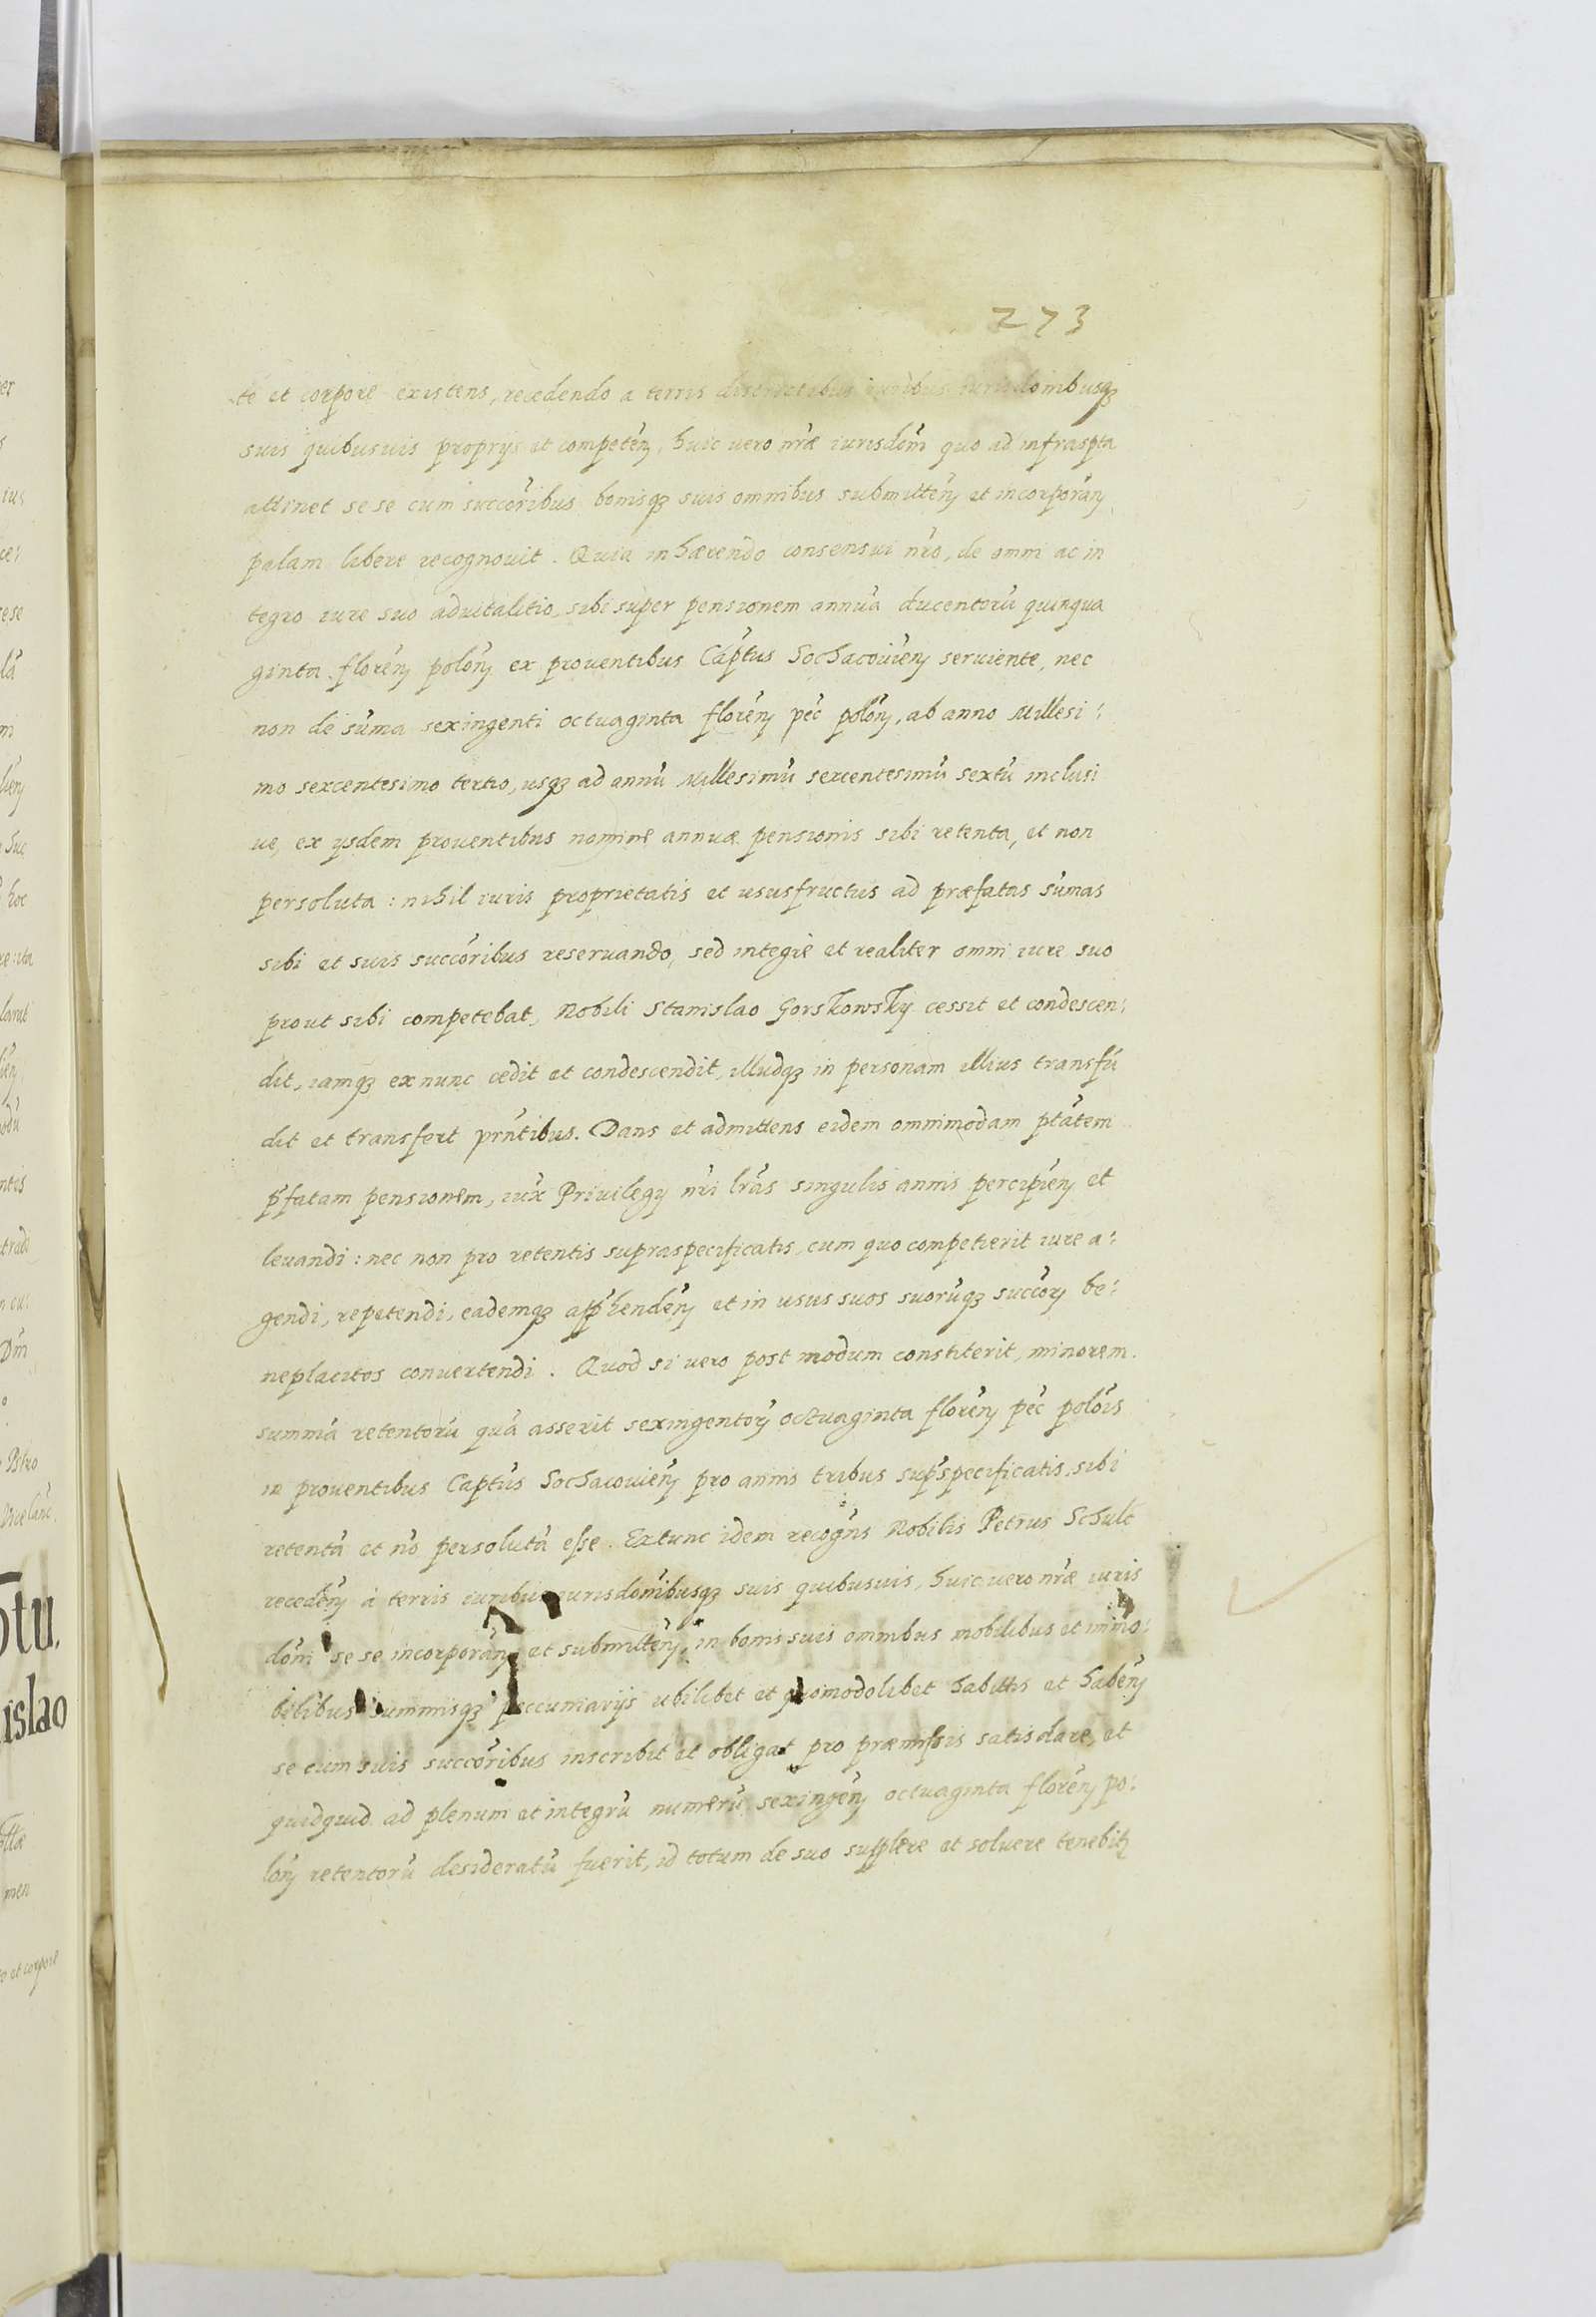 273
te et corpore existens, recedendo a terris districtibus iuribus iurisdoinibusq3
suis quibusuis proprijs et competeñ, huic uero nr̃æ iurisdõni quo ad infraspta
attinet se se cum succõribus bonisq3 suis omnibus submitteñ et incorporañ,
palam libere recognouit. Quia inhærendo consensui nr̃o, de omni ac in
tegro iure suo aduitalitio, sibi super pensionem annuã ducentorũ quinqua
ginta floreñ poloñ ex prouentibus Capt̃us Sochacouieñ seruiente, nec
non de sũma sexingenti octuaginta floreñ pec̃ poloñ, ab anno Millesi:
mo sexcentesimo tertio, usq3 ad annũ Millesimũ sexcentesimũ sextũ inclusi
ue, ex ijsdem prouentibus nomine annuæ pensionis sibi retenta, et non
persoluta: nihil iuris proprietatis et ususfructus ad præfatas sũmas
sibi et suis succõribus reseruando, sed integrè et realiter omni iure suo
prout sibi competebat, Nobili Stanislao Gorskowsky cessit et condescen:
dit, iamq3 ex nunc cedit et condescendit, illudq3 in personam illius transfũ
dit et transfert prñtibus. Dans et admittens eidem omnimodam ptãtem
p̃fatam pensionem, iux̃ Priuilegij nr̃i lr̃as singulis annis percipieñ et
leuandi: nec non pro retentis supraspecificatis, cum quo competierit iure a:
gendi, repetendi, eademq3 app̃hendeñ et in usus suos suorũq3 succoṟ be:
neplacitos conuertendi. Quod si uero post modum constiterit, minorem
summã retentorũ quã asserit sexingentoṟ octuaginta floreñ pec̃ polõis
in prouentibus Capt̃us Sochacouieñ pro annis tribus sup̃specificatis, sibi
retentã et nõ persolutã esse. Extunc idem recogñs Nobilis Petrus Schult
recedeñ à terris iuribus iurisdõnibusq3 suis quibusuis, huic uero nr̃æ iuris
dõni se se incorporañ et submitteñ, in bonis suis omnibus mobilibus et immo:
bilibus summisq3 peccuniarijs ubilibet et quomodolibet habitis et habeñ
se cum suis succõribus inscribit et obligat pro præmissis satisdare, et
quidquid ad plenum et integrũ numerũ sexingeñ octuaginta floreñ po:
loñ retentorũ desideratũ fuerit, id totum de suo supplere et soluere tenebit̃